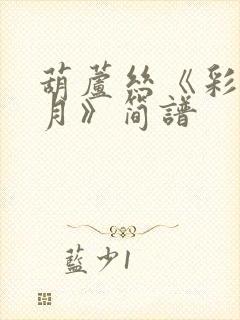 葫蘆絲《彩
月》簡譜
藍少1